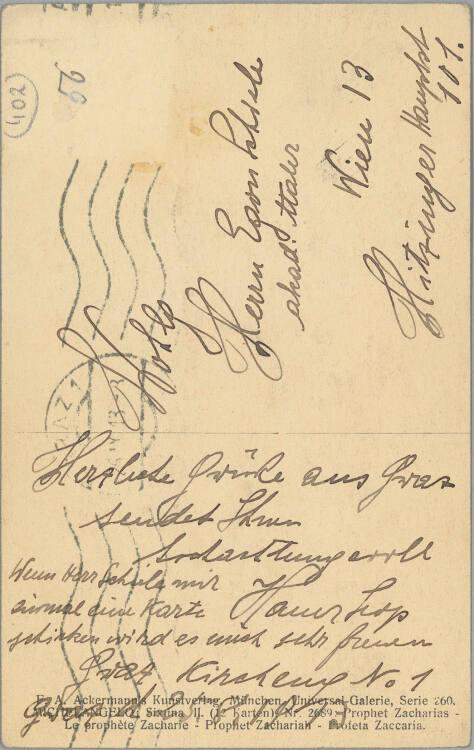 402
56
Wohlg
Herrn Egon Schiele
akad. Maler
Wien 13
Hitzinger Hauptst
101.
GRAZ 1
Herzliche Grüße aus Graz
sendet Ihnen
hochachtungsvoll
Hans
Wenn Herr Schiele mir
einmal eine Karte
schicken wird es mich sehr freuen
Graz, No 1
F. A. Ackermann's Kunstverlag, München. Universal-Galerie, Serie 260.
MICHELANGELO, Sixtina II. (12 Karten) Nr. 2689 Prophet Zacharias -
Le prophète Zacharie - Prophet Zachariah - Profeta Zaccaria.